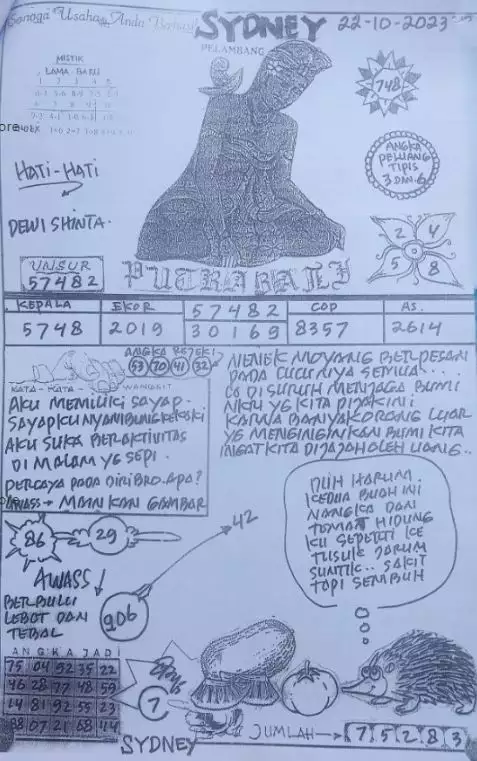 Semoga Usaha Anda Berhasil
SYDNEY
22-10-2023
PELAMBANG
MISTIK
LAMA BARU
1 2 3 4
748
ANGKA
PELUANG
TIPIS
3 DAN 6
HATI-HATI
DEWI SHINTA.
2 4
5 8
UNSUR
57482
PUTRA BALI
KEPALA EKOR 57482 COP AS.
5748 2019 30169 8357 2614
ANGKA REJEKI
53 70 41 32
KATA-KATA WANGSIT
AKU MEMILIKI SAYAP.
SAYAPKU
AKU SUKA BERAKTIVITAS
DI MALAM YG SEPI.
PERCAYA PADA DIRI BRO. APA?
AWASS → MAINKAN GAMBAR
NENEK MOYANG BERPESAN
PADA CUCUNYA SEMUA....
DI SURUH MENJAGA BUMI
YG KITA PIJAK INI
KARNA BANYAK ORANG LUAR
YG MENGINGINKAN BUMI KITA
INGAT KITA DIJAJAH OLEH UANG..
86
29
42
AWASS
BERBULU
LEBAT DAN
TEBAL
906
DUH HARUM.
KEDUA BUAH INI
NANGKA DAN
TOMAT HIDUNG
KU SEPERTI KE
TUSUK JARUM
SUNTIK.. SAKIT
TAPI SEMBUH
ANGKA JADI
75 04 92 35 22
46 28 77 48 59
14 81 92 55 23
88 07 21 68 44
7
SYDNEY
JUMLAH → 7 5 2 8 3